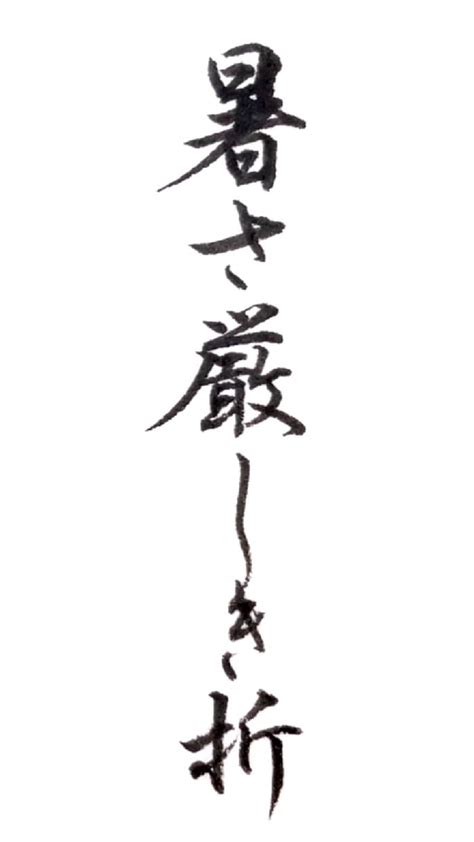 暑さ厳しき折